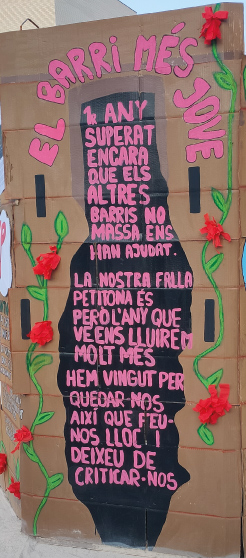 EL BARRI MÉS JOVE
1R ANY
SUPERAT
ENCARA
QUE ELS
ALTRES
BARRIS NO
MASSA ENS
HAN AJUDAT.
LA NOSTRA FALLA
PETITONA ÉS
PERO L'ANY QUE
VE ENS LLUIREM
MOLT MÉS
HEM VINGUT PER
QUEDAR-NOS
AIXÍ QUE FEU-
NOS LLOC I
DEIXEU DE
CRITICAR-NOS